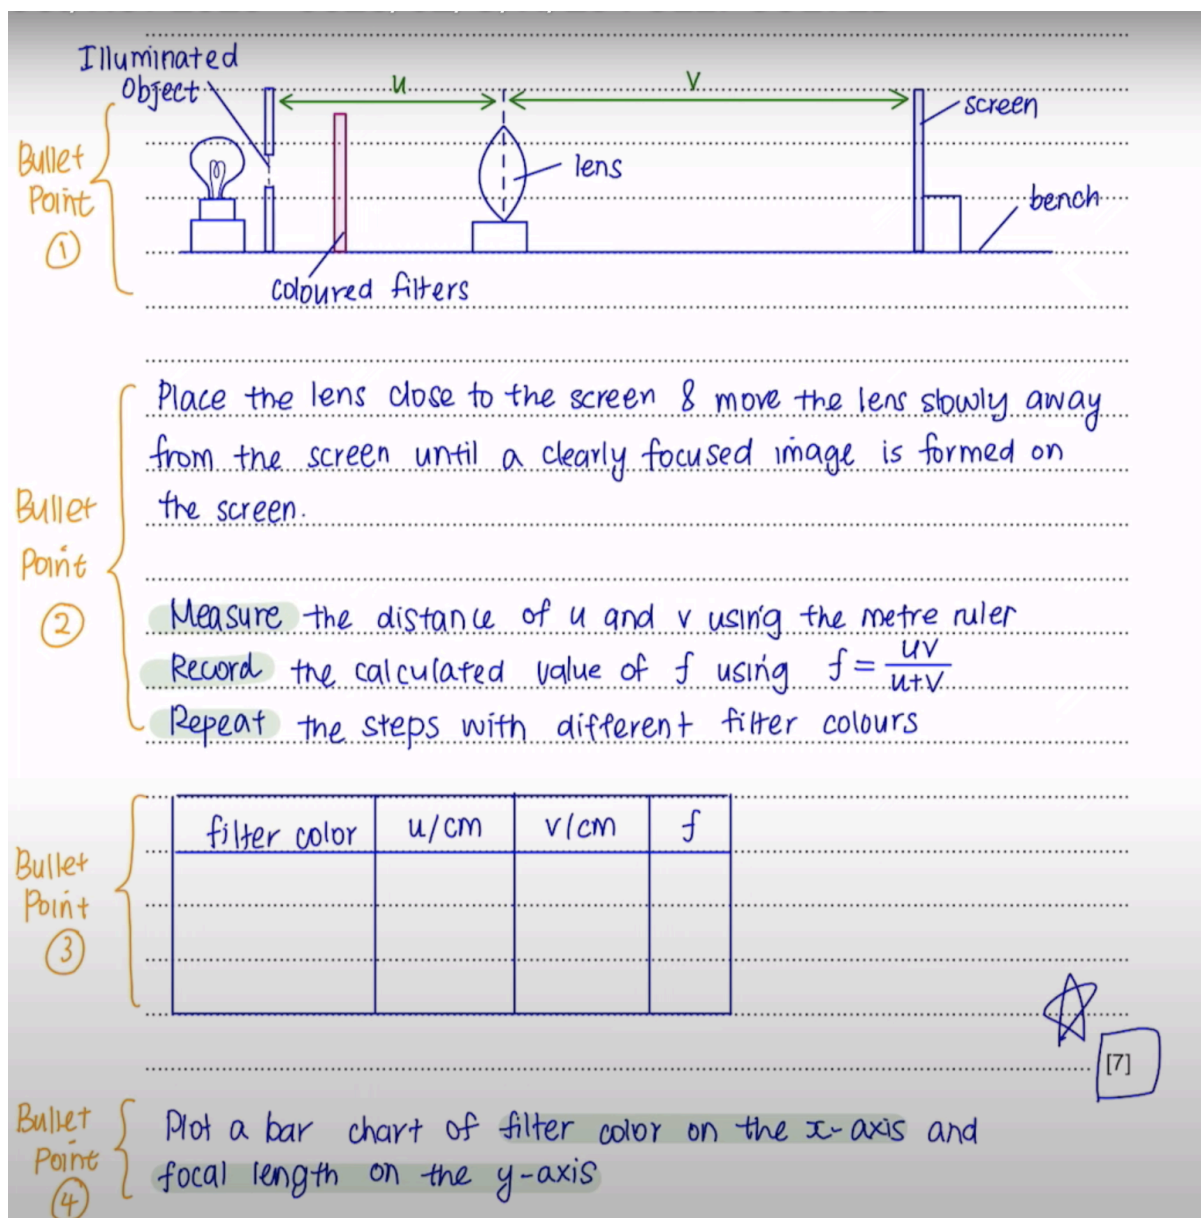 Illuminated
object
u
v
screen
lens
bench
coloured filters
Bullet
Point
1
Place the lens close to the screen & move the lens slowly away
from the screen until a clearly focused image is formed on
the screen.
Bullet
Point
2
Measure the distance of u and v using the metre ruler
Record the calculated value of f using f = uv/u+v
Repeat the steps with different filter colours
Bullet
Point
3
filter color u/cm v/cm f
[7]
Bullet
Point
4
Plot a bar chart of filter color on the x-axis and
focal length on the y-axis